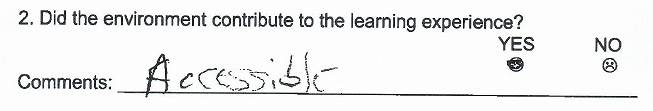 2. Did the environment contribute to the learning experience?
YES NO
Comments: Accessible